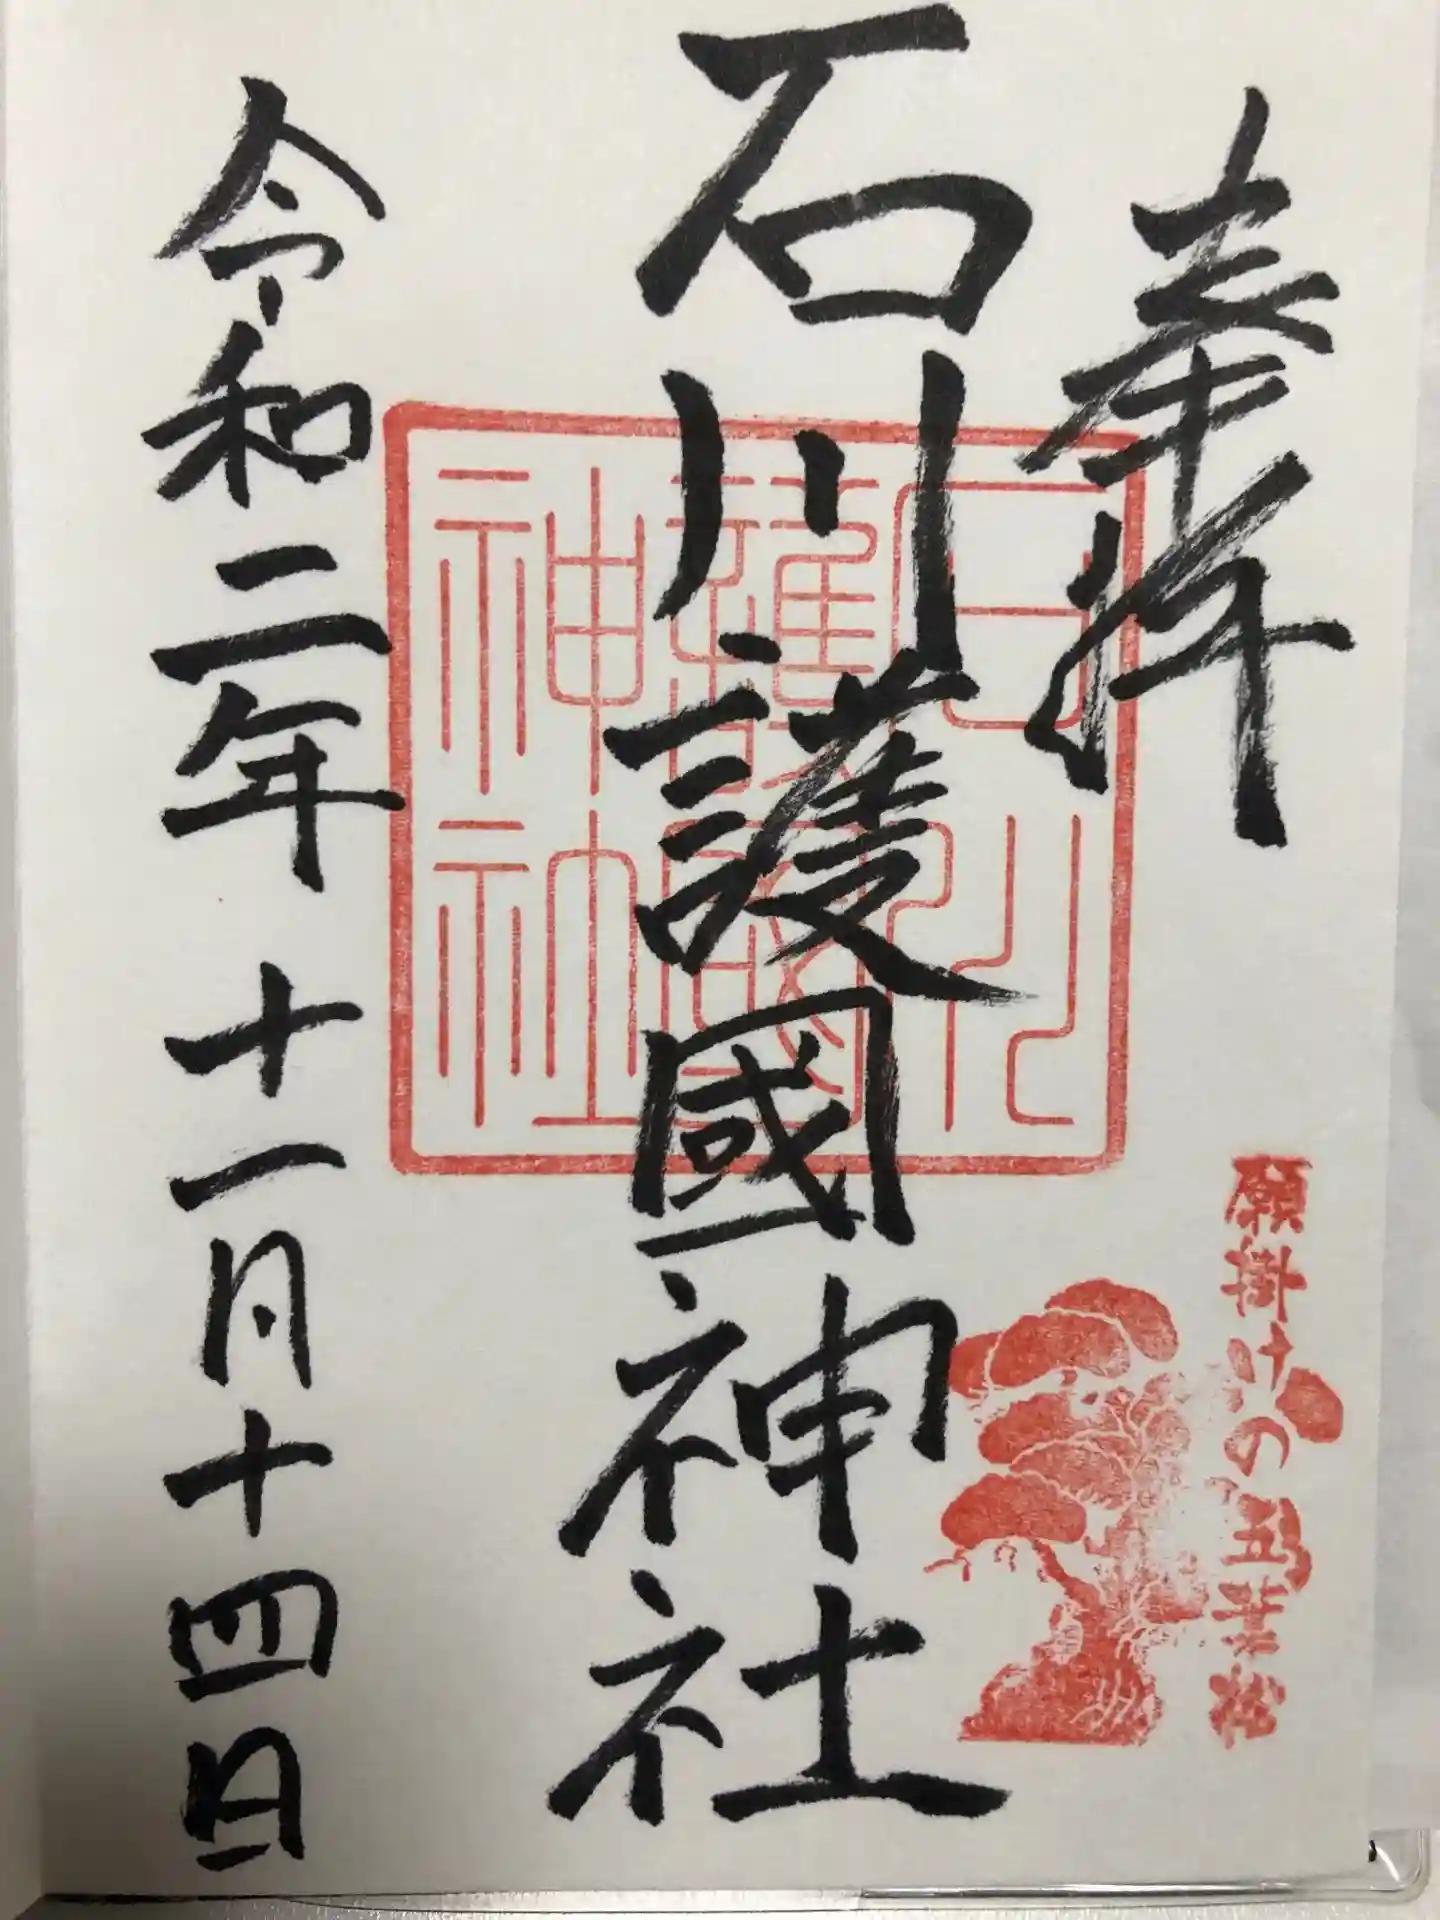 奉拝
石川護國神社
令和二年十一月十四日
石川
護國
神社
願掛けの五葉松